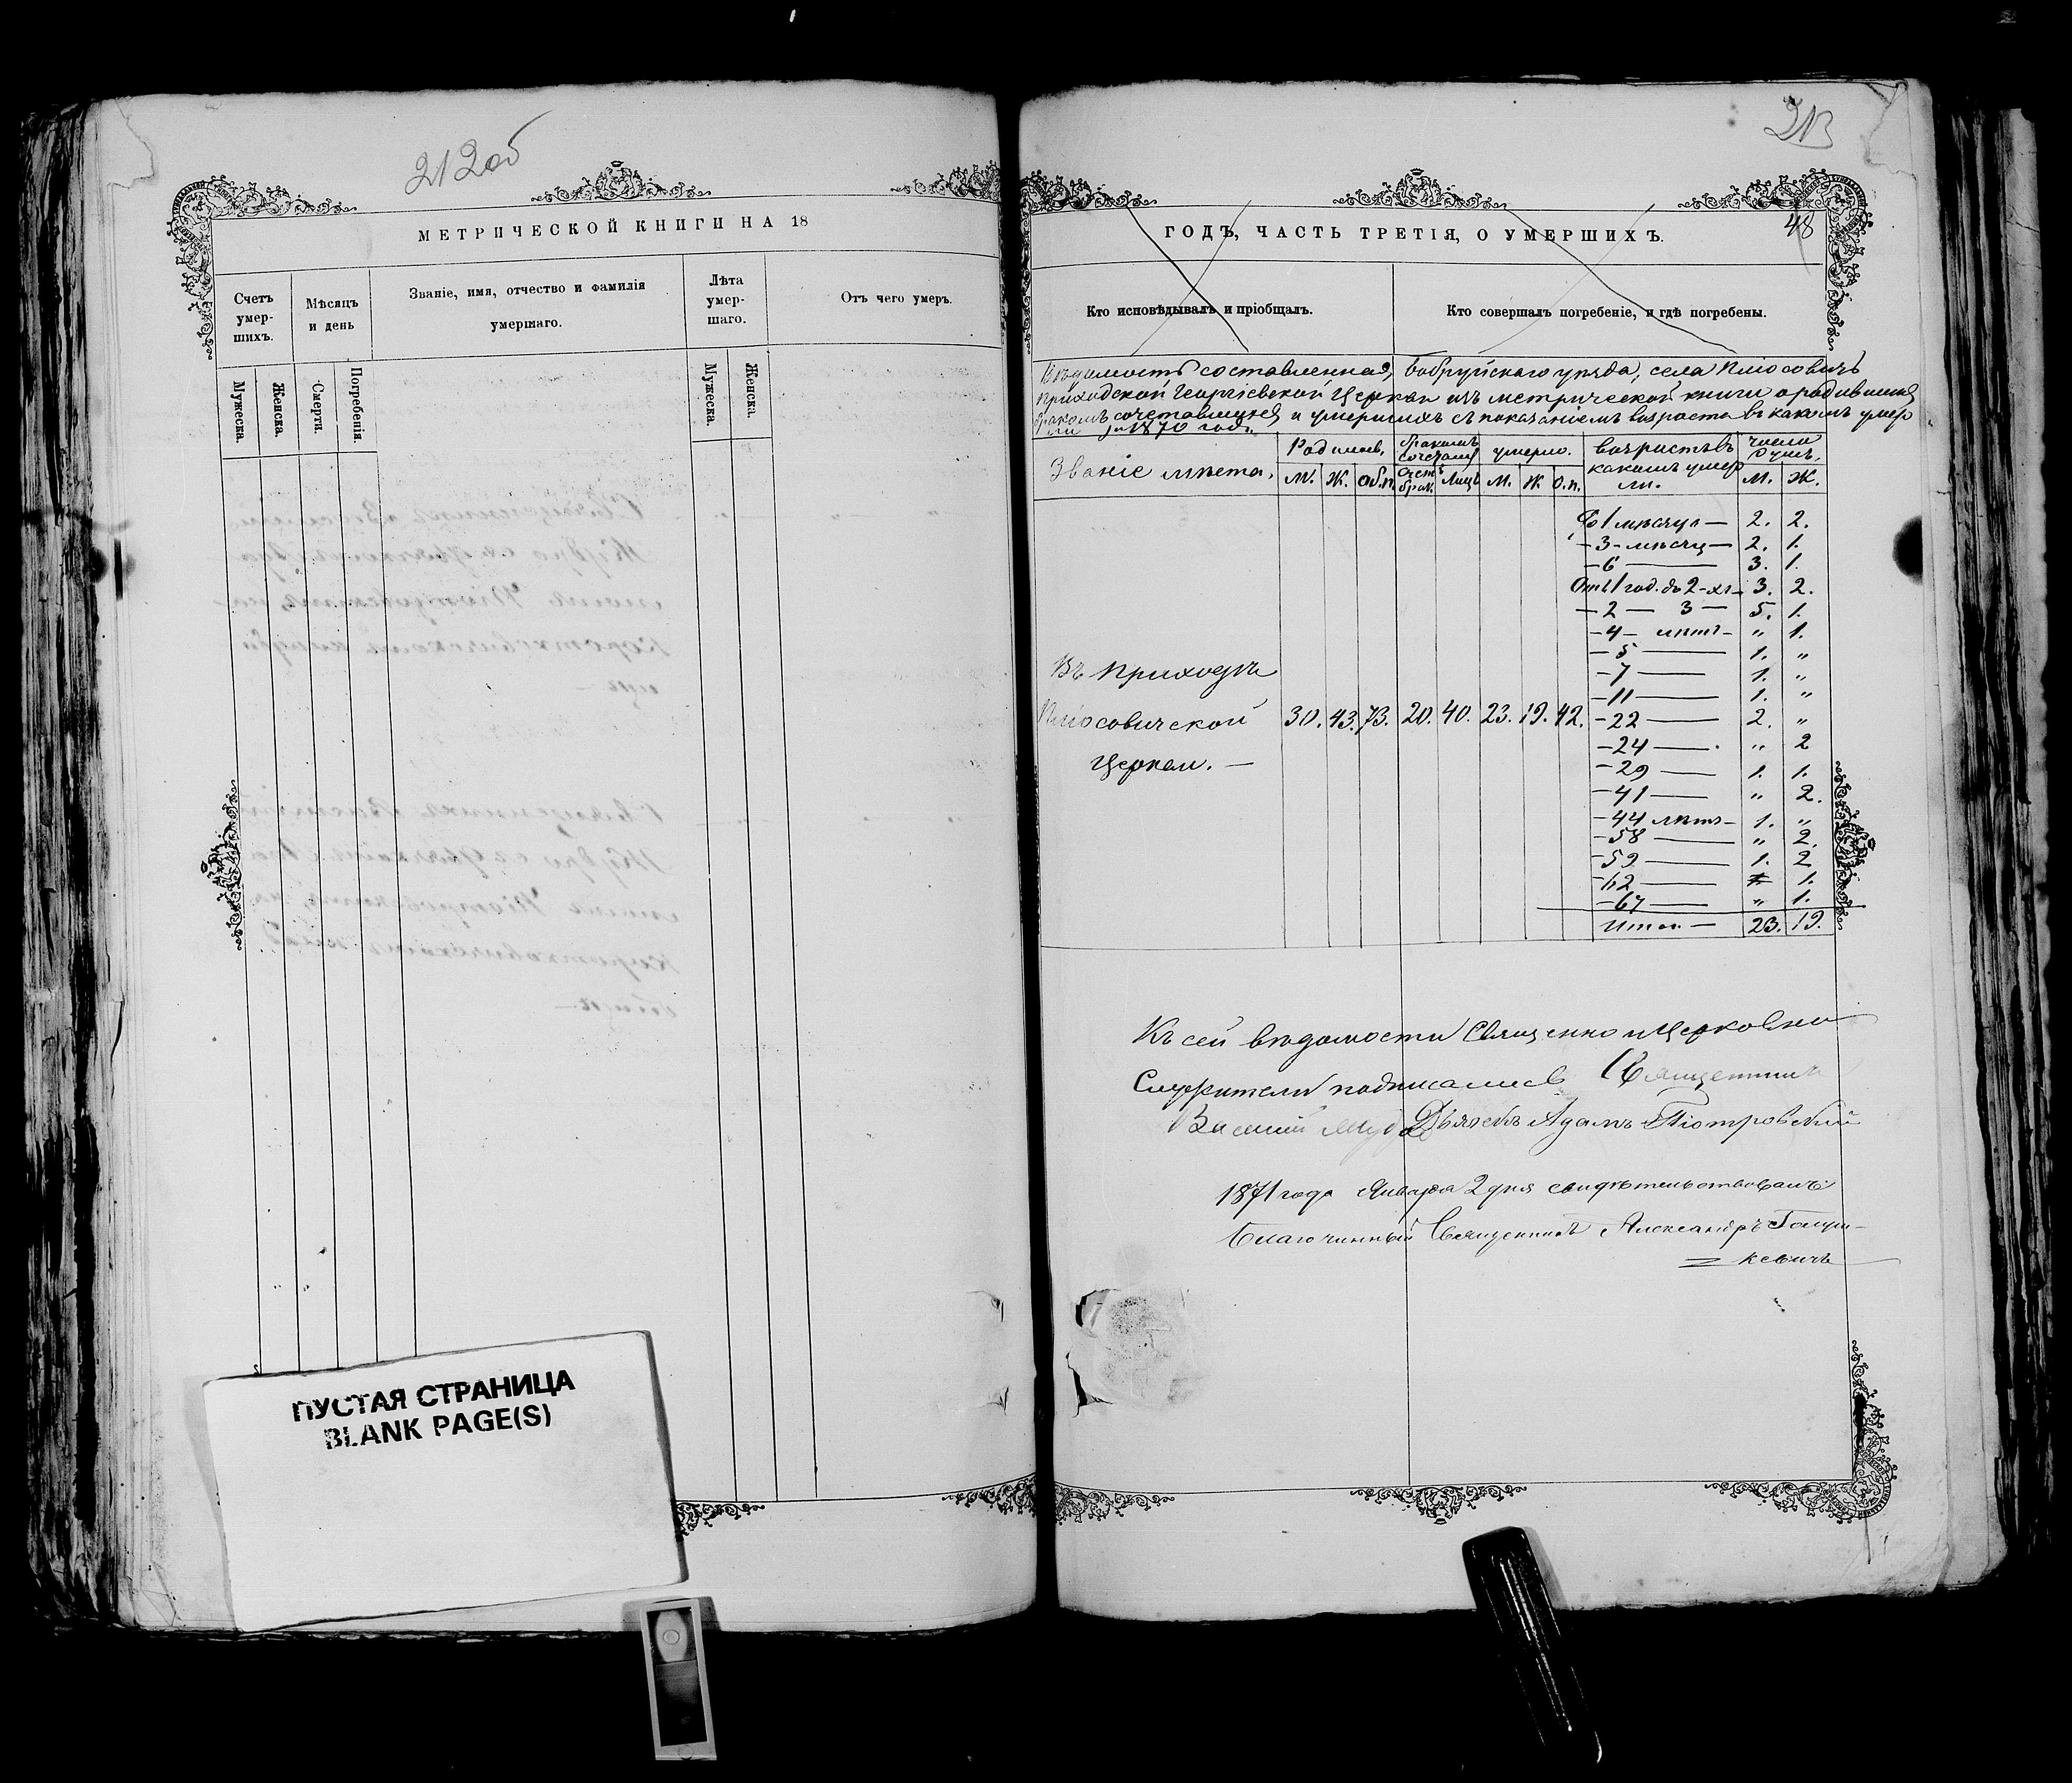 212об
МЕТРИЧЕСКОЙ КНИГИ НА 18
Счетъ умер-шихъ.
Мѣсяцъ и день
Званіе, имя, отчество и фамилія умершаго.
Лѣта умер-шаго.
Отъ чего умеръ.
Мужеска.
Женска.
Смерти.
Погребенія.
Мужеска.
Женска.
ПУСТАЯ СТРАНИЦА
BLANK PAGE(S)
213
48
ГОДЪ, ЧАСТЬ ТРЕТІЯ, О УМЕРШИХЪ.
Кто исповѣдывалъ и пріобщалъ.
Кто совершалъ погребеніе, и гдѣ погребены.
Вѣдомость составленная, Бобруйскаго уѣзда, села Плюсовичъ
приходской Георгіевской Церкви изъ метрической книги о родившихся
бракомъ сочетавшихся и умершихъ съ показаніемъ возраста въ какомъ умер
ли 1870 года.
Званіе мѣста.
Родилось.
Бракомъ сочетано
умерло.
возрастъ въ какомъ умерли.
число душъ.
М. Ж. Об.п. Счетъ брак. Лицъ М. Ж О.п. М. Ж.
До 1 мѣсяца — 2. 2.
— 3 - мѣсяц — 2. 1.
— 6 — 3. 1.
Отъ 1 год. до 2-хъ — 3. 2.
— 2 — 3 — 5. 1.
— 4 — лѣтъ — " 1.
— 5 — 1. "
— 7 — 1. "
— 11 — 1. "
Въ приходѣ
Плюсовичской 30. 43. 73. 20. 40. 23. 19. 42.
Церкви. —
— 22 — 2. "
— 24 — " 2
— 29 — 1. 1.
— 41 — " 2.
— 44 лѣтъ — 1. "
— 58 — " 2.
— 59 — 1. 2
— 62 — 1.
— 67 — " 1.
Итог. — 23. 19.
Къ сей вѣдомости Священно и Церковно
Служители подписались Священникъ
Василій Дьячекъ Адамъ Піотровскій
1871 года Января 2 дня свидѣтельствовалъ
Благочинный Священникъ Александръ
кевичъ